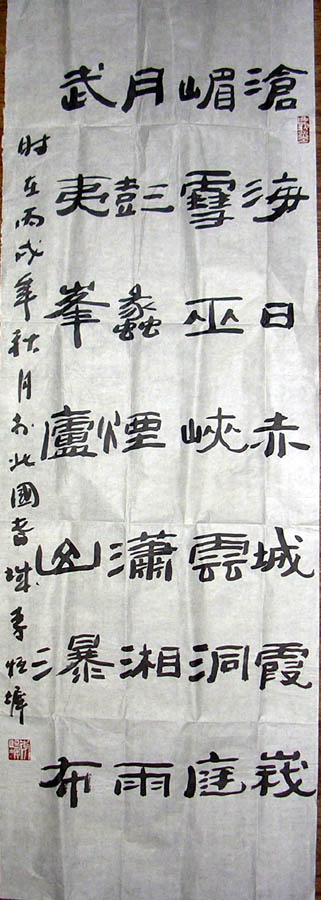 滄海日赤城霞峨
嵋雪巫峽雲洞庭
月彭蠡煙瀟湘雨
武夷峯廬山瀑布
时在丙戌年秋月於北國春城李